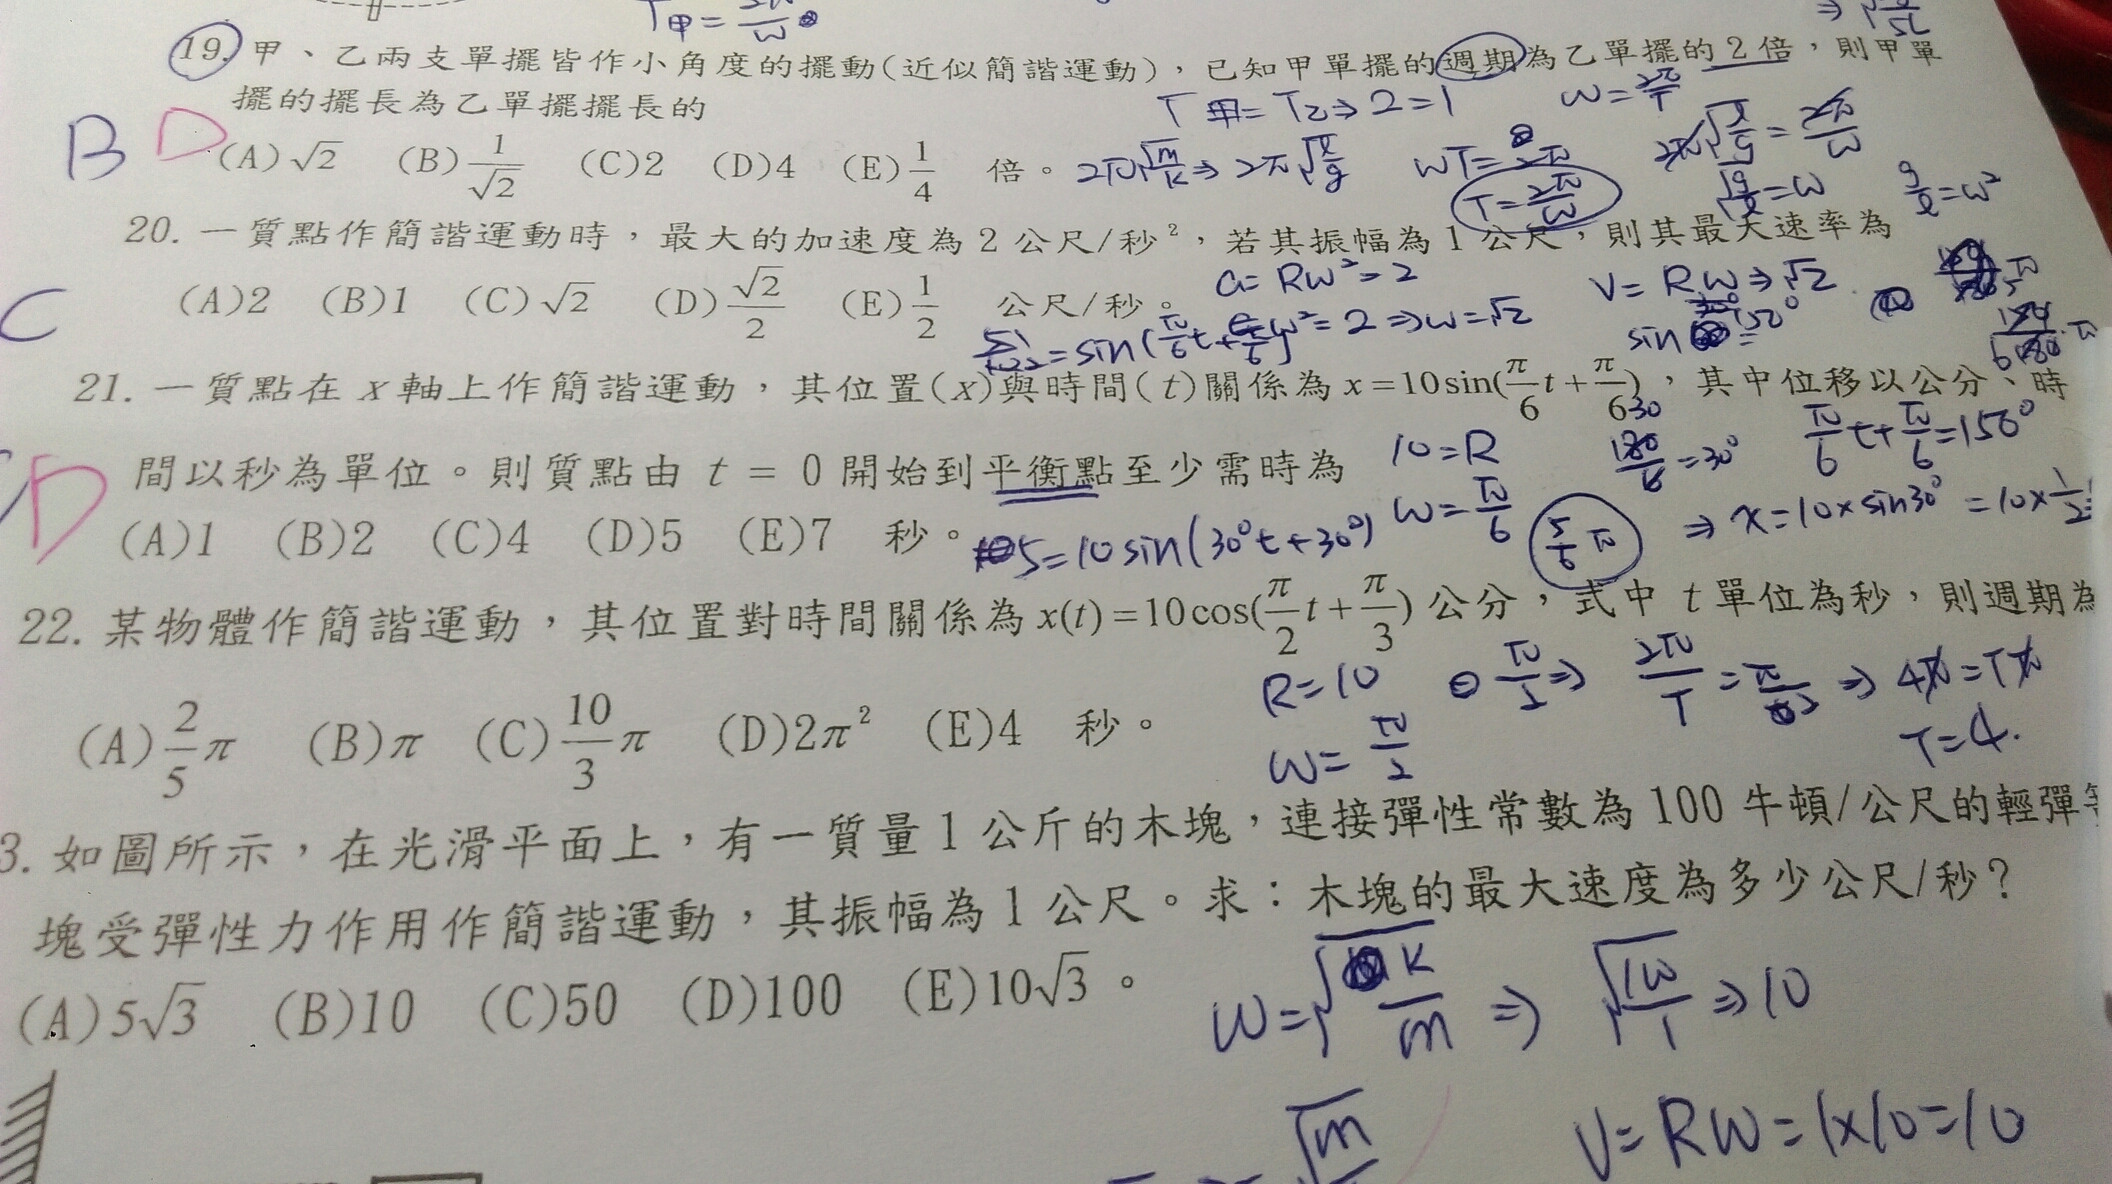 T甲=2π/ω
19. 甲、乙兩支單擺皆作小角度的擺動(近似簡諧運動),已知甲單擺的週期為乙單擺的 2 倍,則甲單
擺的擺長為乙單擺擺長的
T甲=T乙⇒2=1
ω=2π/T
B D
(A)√2 (B)1/√2 (C)2 (D)4 (E)1/4 倍。
2π√(m/k)⇒2π√(l/g)
ωT=2π
T=2π/ω
2π√(l/g)=2π/ω
√(g/l)=ω
g/l=ω²
20. 一質點作簡諧運動時,最大的加速度為 2 公尺/秒²,若其振幅為 1 公尺,則其最大速率為
C
(A)2 (B)1 (C)√2 (D)√2/2 (E)1/2 公尺/秒。
a=Rω²=2
V=Rω⇒√2
ω²=2⇒ω=√2
sin150°=
21. 一質點在 x 軸上作簡諧運動,其位置(x)與時間(t)關係為 x=10sin(π/6 t+π/6),其中位移以公分、時
間以秒為單位。則質點由 t = 0 開始到平衡點至少需時為
10=R
180/6=30°
π/6 t+π/6=150°
D
(A)1 (B)2 (C)4 (D)5 (E)7 秒。
5=10sin(30°t+30°)
ω=π/6
5/6 π
⇒x=10×sin30°=10×1/2
22. 某物體作簡諧運動,其位置對時間關係為 x(t)=10cos(π/2 t+π/3)公分,式中 t 單位為秒,則週期為
(A)2/5 π (B)π (C)10/3 π (D)2π² (E)4 秒。
R=10
ω=π/2
π/2⇒ 2π/T=π/2⇒4π=Tπ
T=4.
3. 如圖所示,在光滑平面上,有一質量 1 公斤的木塊,連接彈性常數為 100 牛頓/公尺的輕彈
塊受彈性力作用作簡諧運動,其振幅為 1 公尺。求:木塊的最大速度為多少公尺/秒?
(A)5√3 (B)10 (C)50 (D)100 (E)10√3。
ω=√(k/m)⇒√(100/1)⇒10
V=Rω=1×10=10